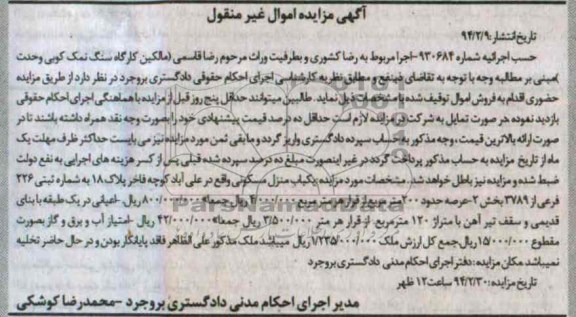 آگهی مزایده اموال غیر منقول
تاریخ انتشار: ۹۴/۲/۹
حسب اجرائیه شماره ۹۳۰۶۸۴-اجرا مربوط به رضا کشوری و بطرفیت وراث مرحوم رضا قاسمی (مالکین کارگاه سنگ نمک کوبی وحدت
)مبنی بر مطالبه وجه با توجه به تقاضای ذینفع و مطابق نظریه کارشناسی اجرای احکام حقوقی دادگستری بروجرد در نظر دارد از طریق مزایده
حضوری اقدام به فروش اموال توقیف شده با مشخصات ذیل نماید. طالبین میتوانند حداقل پنج روز قبل از مزایده با هماهنگی اجرای احکام حقوقی
بازدید نموده هر صورت تمایل به شرکت در مزایده لازم است حداقل ده درصد قیمت پیشنهادی خود را بصورت وجه نقد همراه داشته باشند تا در
صورت ارائه بالاترین قیمت، وجه مذکور به حساب سپرده دادگستری واریز گردد و مابقی ثمن مورد مزایده نیز می بایست حداکثر ظرف مهلت یک
ماه از تاریخ مزایده به حساب مذکور پرداخت گردد در غیر اینصورت مبلغ ده درصد سپرده شده قبلی پس از کسر هزینه های اجرایی به نفع دولت
ضبط شده و مزایده نیز باطل خواهد شد. مشخصات مورد مزایده: یکباب منزل مسکونی واقع در علی آباد کوچه فاخر پلاک ۱۸ به شماره ثبتی ۲۲۶
فرعی از ۳۷۸۹ بخش ۲-عرصه حدود ۲۰۰ متر مربع از قرار هر متر مربع ریال جمعا ۸۰۰/۰۰۰/۰۰۰ ریال -اعیانی در یک طبقه با بنای
قدیمی و سقف تیر آهن با متراژ ۱۲۰ مترمربع. از قرار هر متر ۳/۵۰۰/۰۰۰ ریال جمعا ۴۲/۰۰۰/۰۰۰ ریال -امتیاز آب و برق و گاز بصورت
مقطوع ۱۵/۰۰۰/۰۰۰ ریال جمع کل ارزش ملک ۷/۲۳۵/۰۰۰/۰۰۰ ریال میباشد ملک مذکور علی الظاهر فاقد پایانکار بودن و در حال حاضر تخلیه
نمیباشد مکان مزایده: دفتر اجرای احکام مدنی دادگستری بروجرد
تاریخ مزایده: ۹۴/۲/۳۰ ساعت ۱۲ ظهر
مدیر اجرای احکام مدنی دادگستری بروجرد -محمدرضا کوشکی